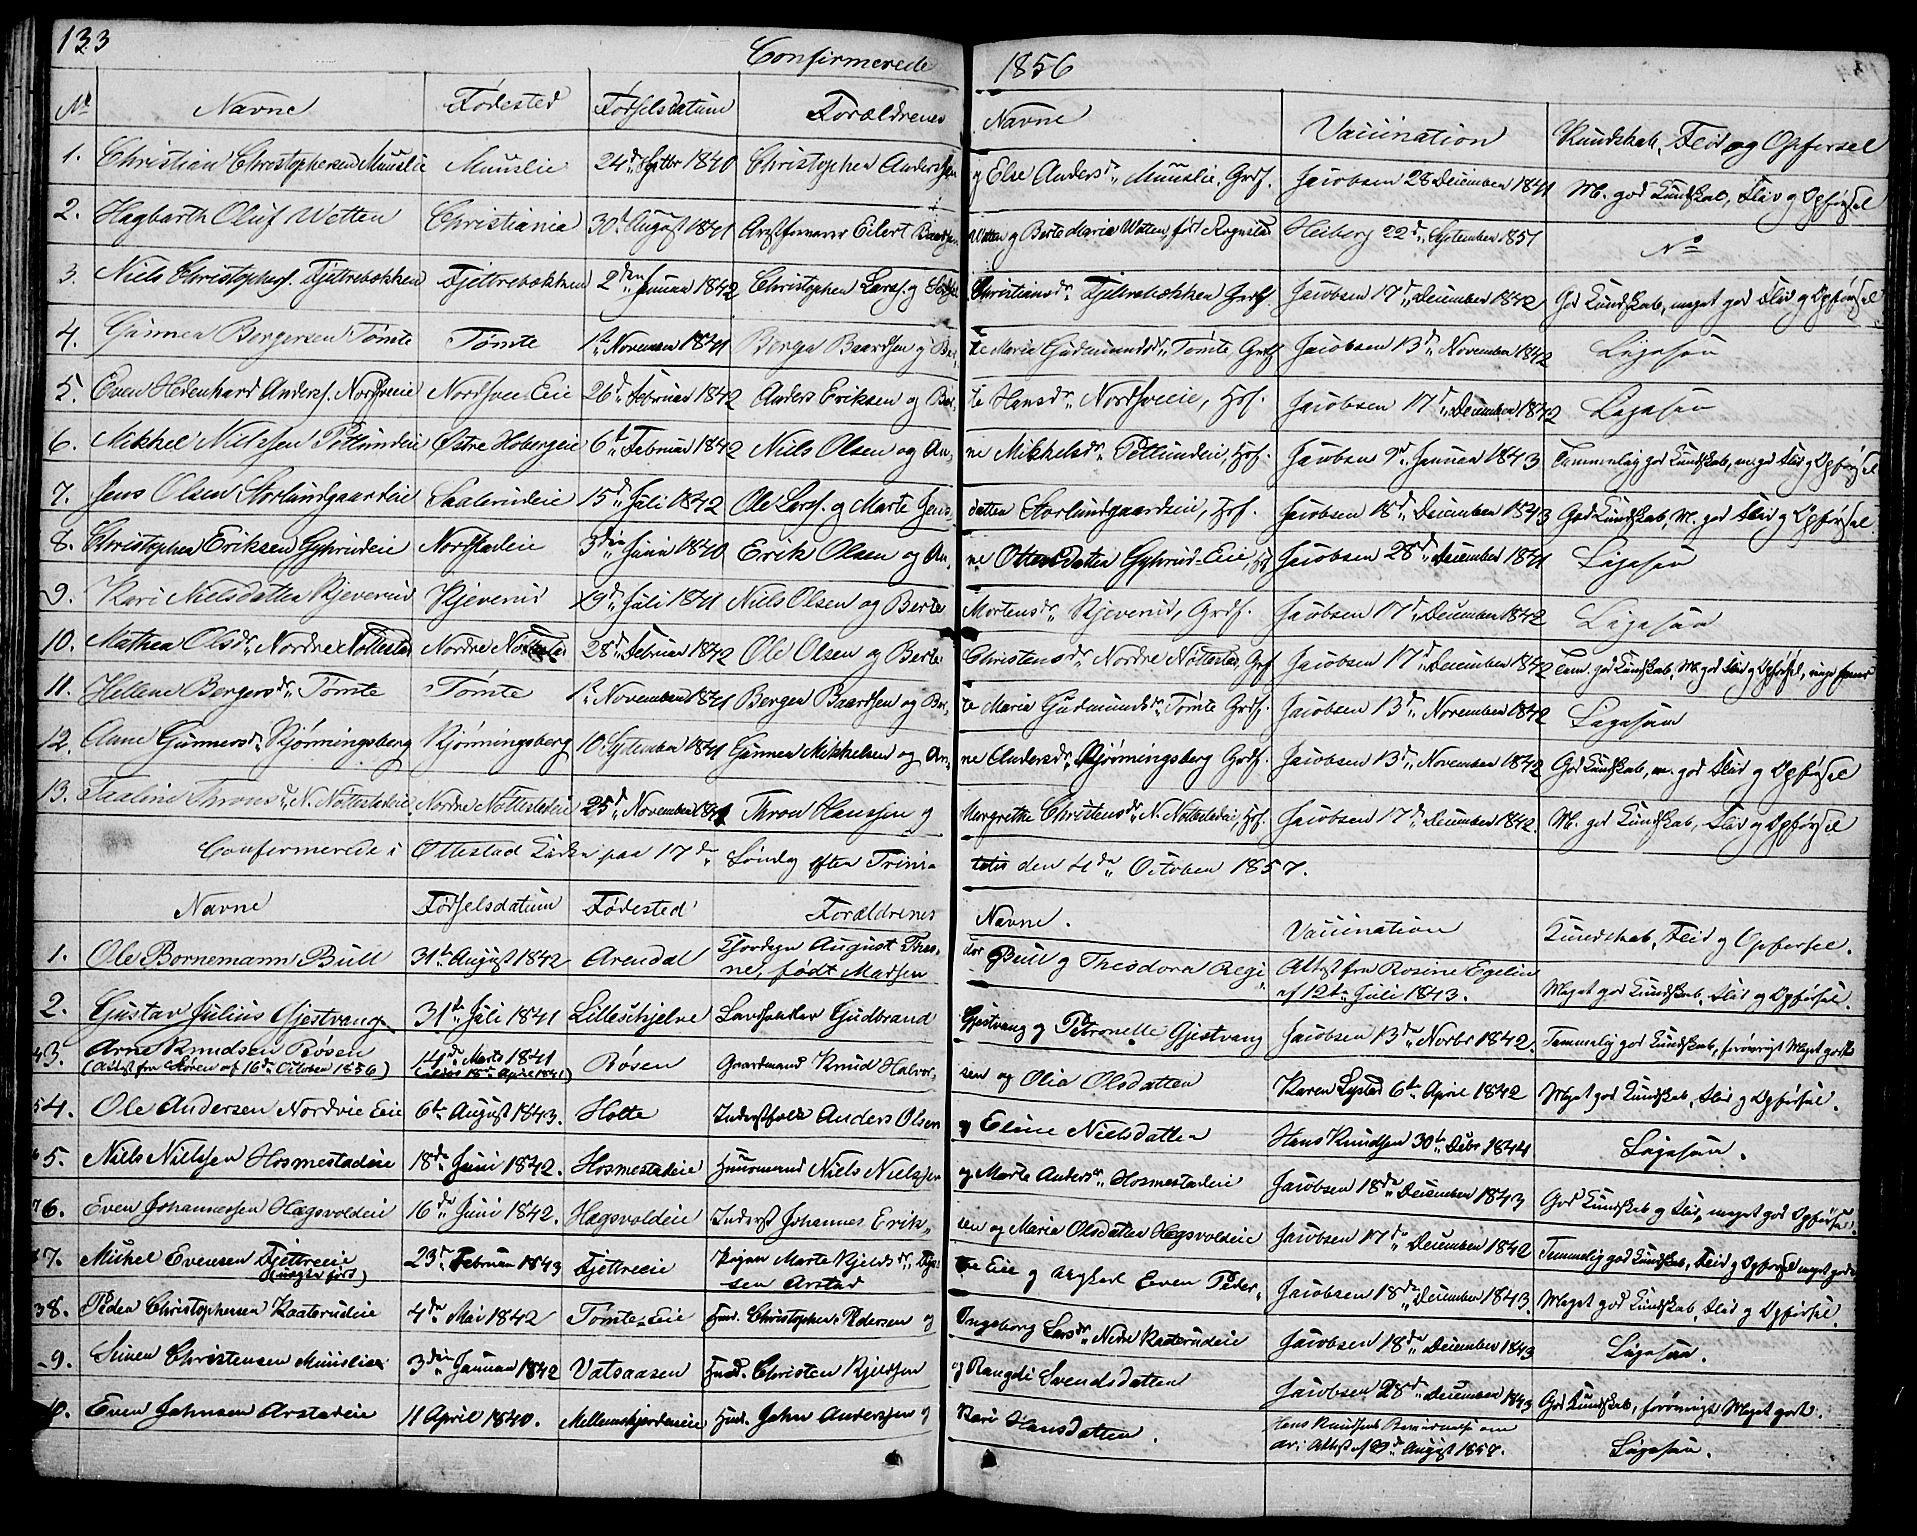 133 Confirmerede 1856
No Navne Fødested Fødselsdatum Forældrenes Navne Vaccination Kundskab, Flid og Opførsel
1. Christian Christophersen Muuslie Muuslie 24d Septbr 1840 Christopher Anderssen og Else Andersdr Muuslie, Grdf. Jacobsen 28 December 1841 M. god Kundskab, Flid og Opførsel
2. Hagbarth Oluf Wetten Christiania 30d August 1841 Eilert Baardsen Wetten og Berte Maria Wetten, født Rognstad Heiberg 22d September 1851 No
3. Niels Christophers. Fjettrebækken Fjettrebækken 2den Januar 1842 Christopher Larss. og Christiansdr Fjettrebækken Grdf Jacobsen 17d December 1842 God Kundskab, meget god Flid og Opførsel
4. Gunner Bergersen Tømte Tømte 1st November 1841 Berger Baardsen og Berte Maria Gudmundsdr Tømte Grdf Jacobsen 13d November 1842 Ligesaa
5. Even Hedenhard Anderss. Nordsveeie Nordsvee Eie 26d Februar 1842 Anders Eriksen og Berte Hansdr Nordsveeie, Hsf. Jacobsen 17d December 1842 Ligesaa
6. Mikkel Nielssen Pettundeie Østre Hobergeie 6t Februar 1842 Niels Olsen og Anne Mikkelsdr Pettundeie, Hsf. Jacobsen 9d Januar 1843 Temmelig god Kundskab, m. god Flid og Opførsel
7. Jens Olsen Storlundgaardeie Saaterudeie 15d Juli 1842 Ole Larss. og Marte Jensdatter Storlundgaardeie, Hsf. Jacobsen 18d December 1843 God Kundskab, M. god Flid og Opførsel
8. Christopher Eriksen Gyhrudeie Nordstadeie 3die Juni 1840 Erik Olsen og Anne Ottersdatter Gyhrud-Eie, Hsf Jacobsen 28d December 1841 Ligesaa
9. Kari Nielsdatter Kjeverud Kjeverud 19d Juli 1841 Niels Olsen og Berte Mortensdr Kjeverud, Grdf. Jacobsen 17d December 1842 Ligesaa
10. Mathea Olsdr Nordre Nøttestad Nordre Nøttestad 28d Februar 1842 Ole Olsen og Berte Christensdr Nordre Nøttestad, Grdf Jacobsen 17d December 1842 Tem. god Kundskab, M. god Flid og Opførsel,
11. Hellene Bergersdr Tømte Tømte 1st November 1841 Berger Baardsen og Berte Maria Gudmundsdr Tømte Grdf. Jacobsen 13d November 1842 Ligesaa
12. Anne Gunnersdr Kjørmingsberg Kjørmingsberg 10 September 1841 Gunner Mikkelsen og Anne Andersdr Kjørmingsberg Grdf. Jacobsen 13d November 1842 God Kundskab, m. god Flid og Opførsel
13. Pauline Thronsdr N. Nøttestadeie Nordre Nøttestadeie 25d November 1841 Thron Hanssen og Margrethe Christensdr N. Nøttestadeie, Hsf. Jacobsen 17d December 1842. M. god Kundskab, Flid og Opførsel
Confirmerede i Ottestad Kirke paa 17de Søndag efter Trinitatis den 4de October 1857.
Navne Fødselsdatum Fødested Forældrenes Navne. Vaccination Kundskab, Flid og Opførsel.
1. Ole Bornemann Bull 31te August 1842 Arendal August Theodor Bull og Theodora Regine, født Madsen Attest fra Rosine Egelin af 12te Juli 1843. Meget god Kundskab, Flid og Opførsel.
2. Gustav Julius Gjestvang 31te Juli 1841 Lilleskjelve Gudbrand Gjestvang og Petronelle Gjestvang Jacobsen 13de Novbr 1842. Temmelig god Kundskab, forøvrigt Meget godt
3. Arne Knudsen Røsen (Attest fra Støren af 16de October 1856) 14de Marts 1841 Røsen Gaardmand Knud Halvorsen og Olia Olsdatter Karen Lysted 6te April 1842 Meget god Kundskab, Flid og Opførsel.
4. Ole Andersen Nordvie Eie 6te August 1843. Holte Inderstfolk Anders Olsen og Eline Nielsdatter Hans Knudsen 30te Debr 1844 Ligesaa.
5. Niels Nielssen Hosmestadeie 18de Juni 1842. Hosmestadeie Huusmand Niels Nielssen og Marte Andersdr Hosmestadeie Jacobsen 18de December 1843 God Kundskab og Flid, meget god Opførsel.
6. Even Johannessen Hagsvoldeie 16de Juni 1842. Hagsvoldeie Inderst Johannes Eriksen og Maria Olsdatter Hagsvoldeie Jacobsen 17de December 1842 Temmelig god Kundskab, Flid og Opførsel meget godt
7. Mikkel Evensen Fjettreeie (uægte født) 23d Februar 1843 Fjettreeie Pigen Marte Kjeldsdr Fjettre Eie og ungkarl Even Pedersen Arstad Jacobsen 18de December 1843. Meget god Kundskab, Flid og Opførsel.
8. Peder Christophersen Kaaterudeie 4de Mai 1842 Tømte-Eie Hmd. Christopher Pedersen og Ingeborg Larsdr Nedre Kaaterudeie Jacobsen 18de December 1843 Ligesaa.
9. Simen Christensen Muuslieeie 3die Januar 1842 Vatsaasen Hmd. Christen Kjeldsen og Rangdi Svendsdatter Jacobsen 28de December 1843 God Kundskab, forøvrigt Meget godt.
10. Even Johnsen Arstadeie 11 April 1840. Mellemskjerdeneie Hmd. John Anderssen og Kari Hansdatter. Hans Knudsens om Attest af August 1857. Ligesaa.